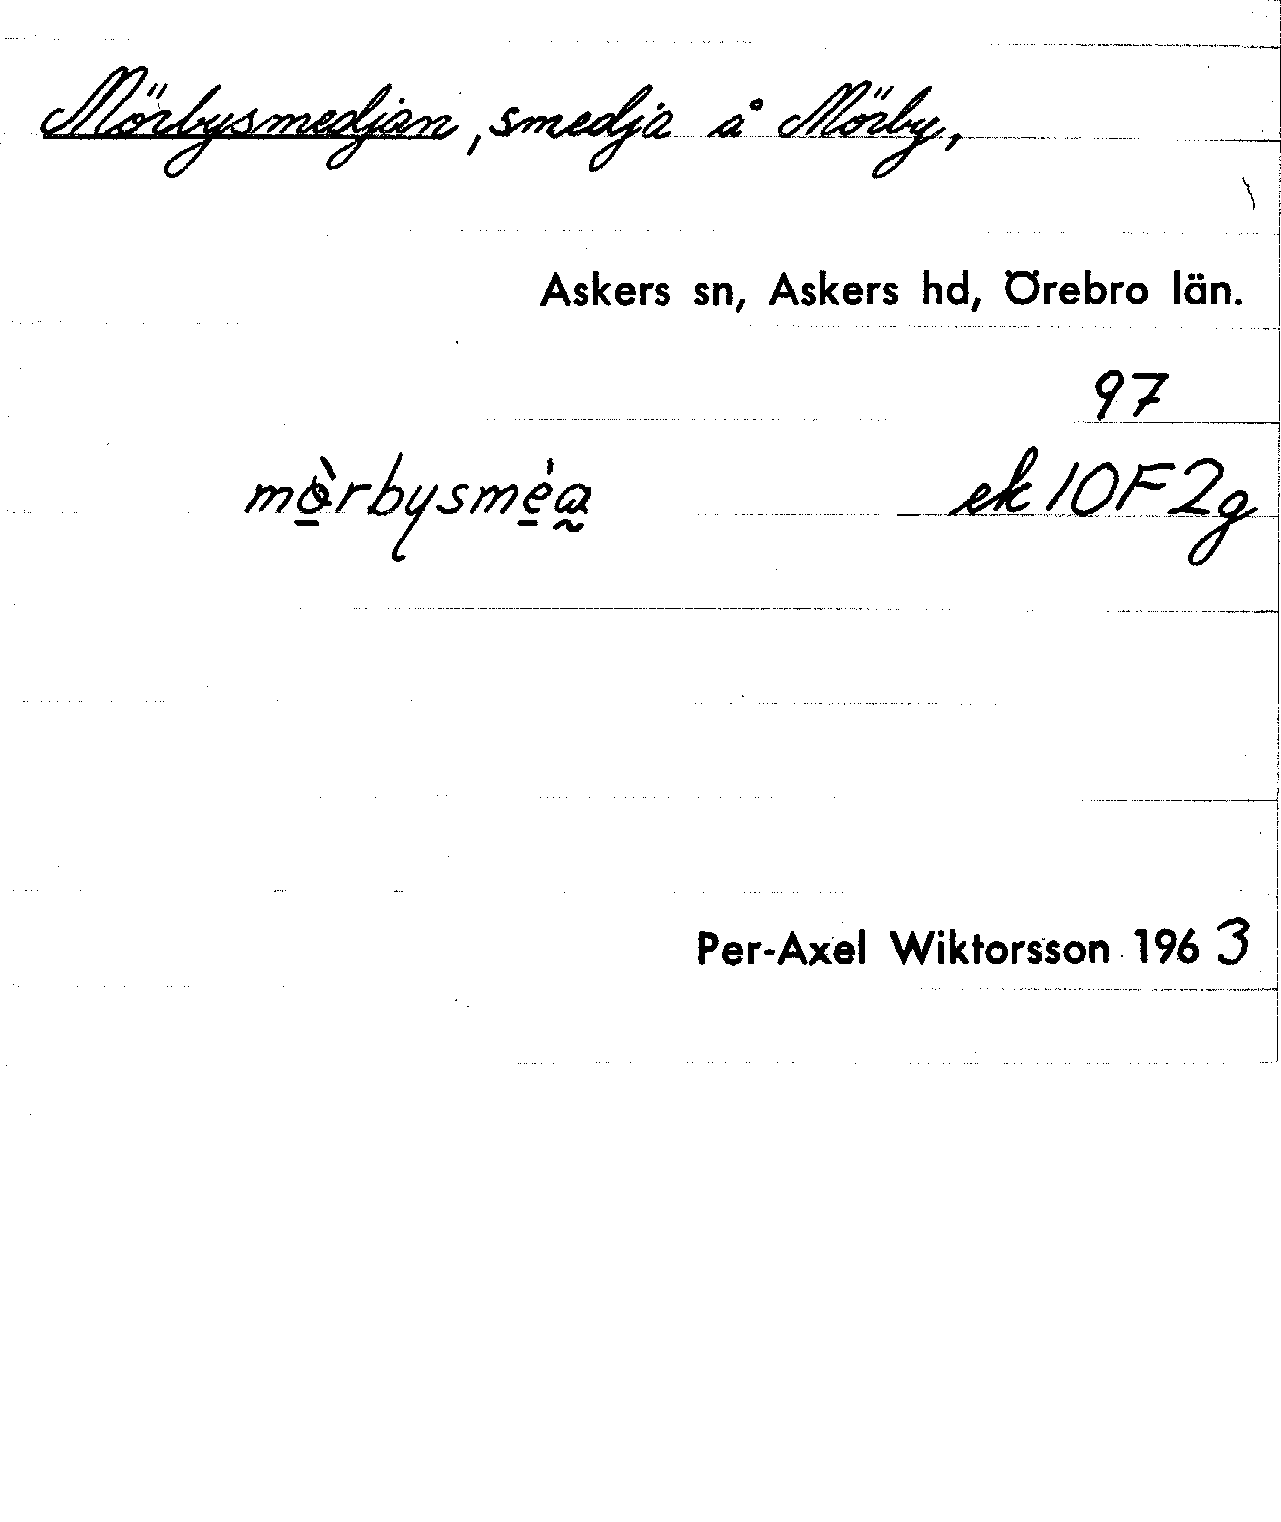 Mörbysmedjan, smedja å Mörby,
Askers sn, Askers hd, Örebro län.
97
mö̀rbysmé̱a̰ ek 10F2g
Per-Axel Wiktorsson 1963